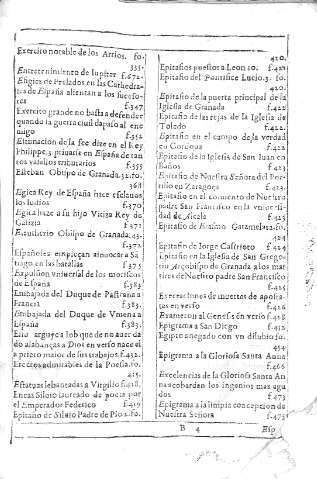 Exercito notable de los Arrios. fo.
355.
Entretenimiento de Iupiter f.672.
Efigies de Prelados en las Cathedra-
les de España alientan a los sucesso-
res f.347
Exercito grande no basta a defender
quando la guerra ciuil da passo al ene
migo f.552
Estimacion de la fee dize en el Rey
Philippe. 3. priuarse en España de tan
tos vasallos tributarios f.555
Esteban Obispo de Granada. 32. fo.
368
Egica Rey de España haze esclauos
los Iudios f.370
Egica haze a su hijo Vitiza Rey de
Galizia f.371
Obispo de Granada. 43.
f.372
Españoles empieçan a inuocar a Sã
tiago en las batallas f.375
Expulsion vniuersal de los moriscos
de España f.383.
Embajada del Duque de Pastrana a
Francia f.383.
Embajada del Duque de Vmena a
España f.383.
Eliu arguye a Iob que no auer da
do alabanças a Dios en verso nace el
a primero mayor de sus trabajos. f.432.
Excelēcias admirables de la Poesia. fo.
415.
Estatuas lebantadas a Virgilio f.418.
Eneas Siluio laureado de poeta por
el Emperador Federico f.419
Epitafio de Siluio Padre de Pio 2. fo.
420.
Epitafios puestos a Leon 10. f.421
Epitafio del Pontifice Lucio. 3. fo.
420.
Epitafio de la puerta principal de la
Iglesia de Granada f.422
Epitafio de las rejas de la Iglesia de
Toledo f.422.
Epitafio en el campo de la verdad
en Cordoua f.422
Epitafio de la Iglesia de San Iuan en
Baños f.423
Epitafio de Nuestra Señora del Por-
tillo en Zaragoça f.423.
Epitafio en el conuento de Nuestro
padre San Francisco en la vniuersi-
dad de Alcala f.423
Epitafio de Erasmo 
f.424
Epitafio de Iorge Castrioto f.424
Epitafio en la Iglesia de San Grego-
rio Arçobispo de Granada a los mar-
tires de Nuestro padre San Francisco
f.425
Execraciones de muertes de aposta-
tas en verso f.426
Examerõ al Genesis ẽn verso f.428
Epigrama a San Diego f.432
Egipto anegado con vn dilubio. fo.
454.
Epigrama a la Gloriosa Santa Anna
f.466
Excelencias de la Gloriosa Santa An
na acobardan los ingenios mas agu
dos f.473
Epigrama a la limpia concepcion de
Nuestra Señora f.475
B 4 Esp